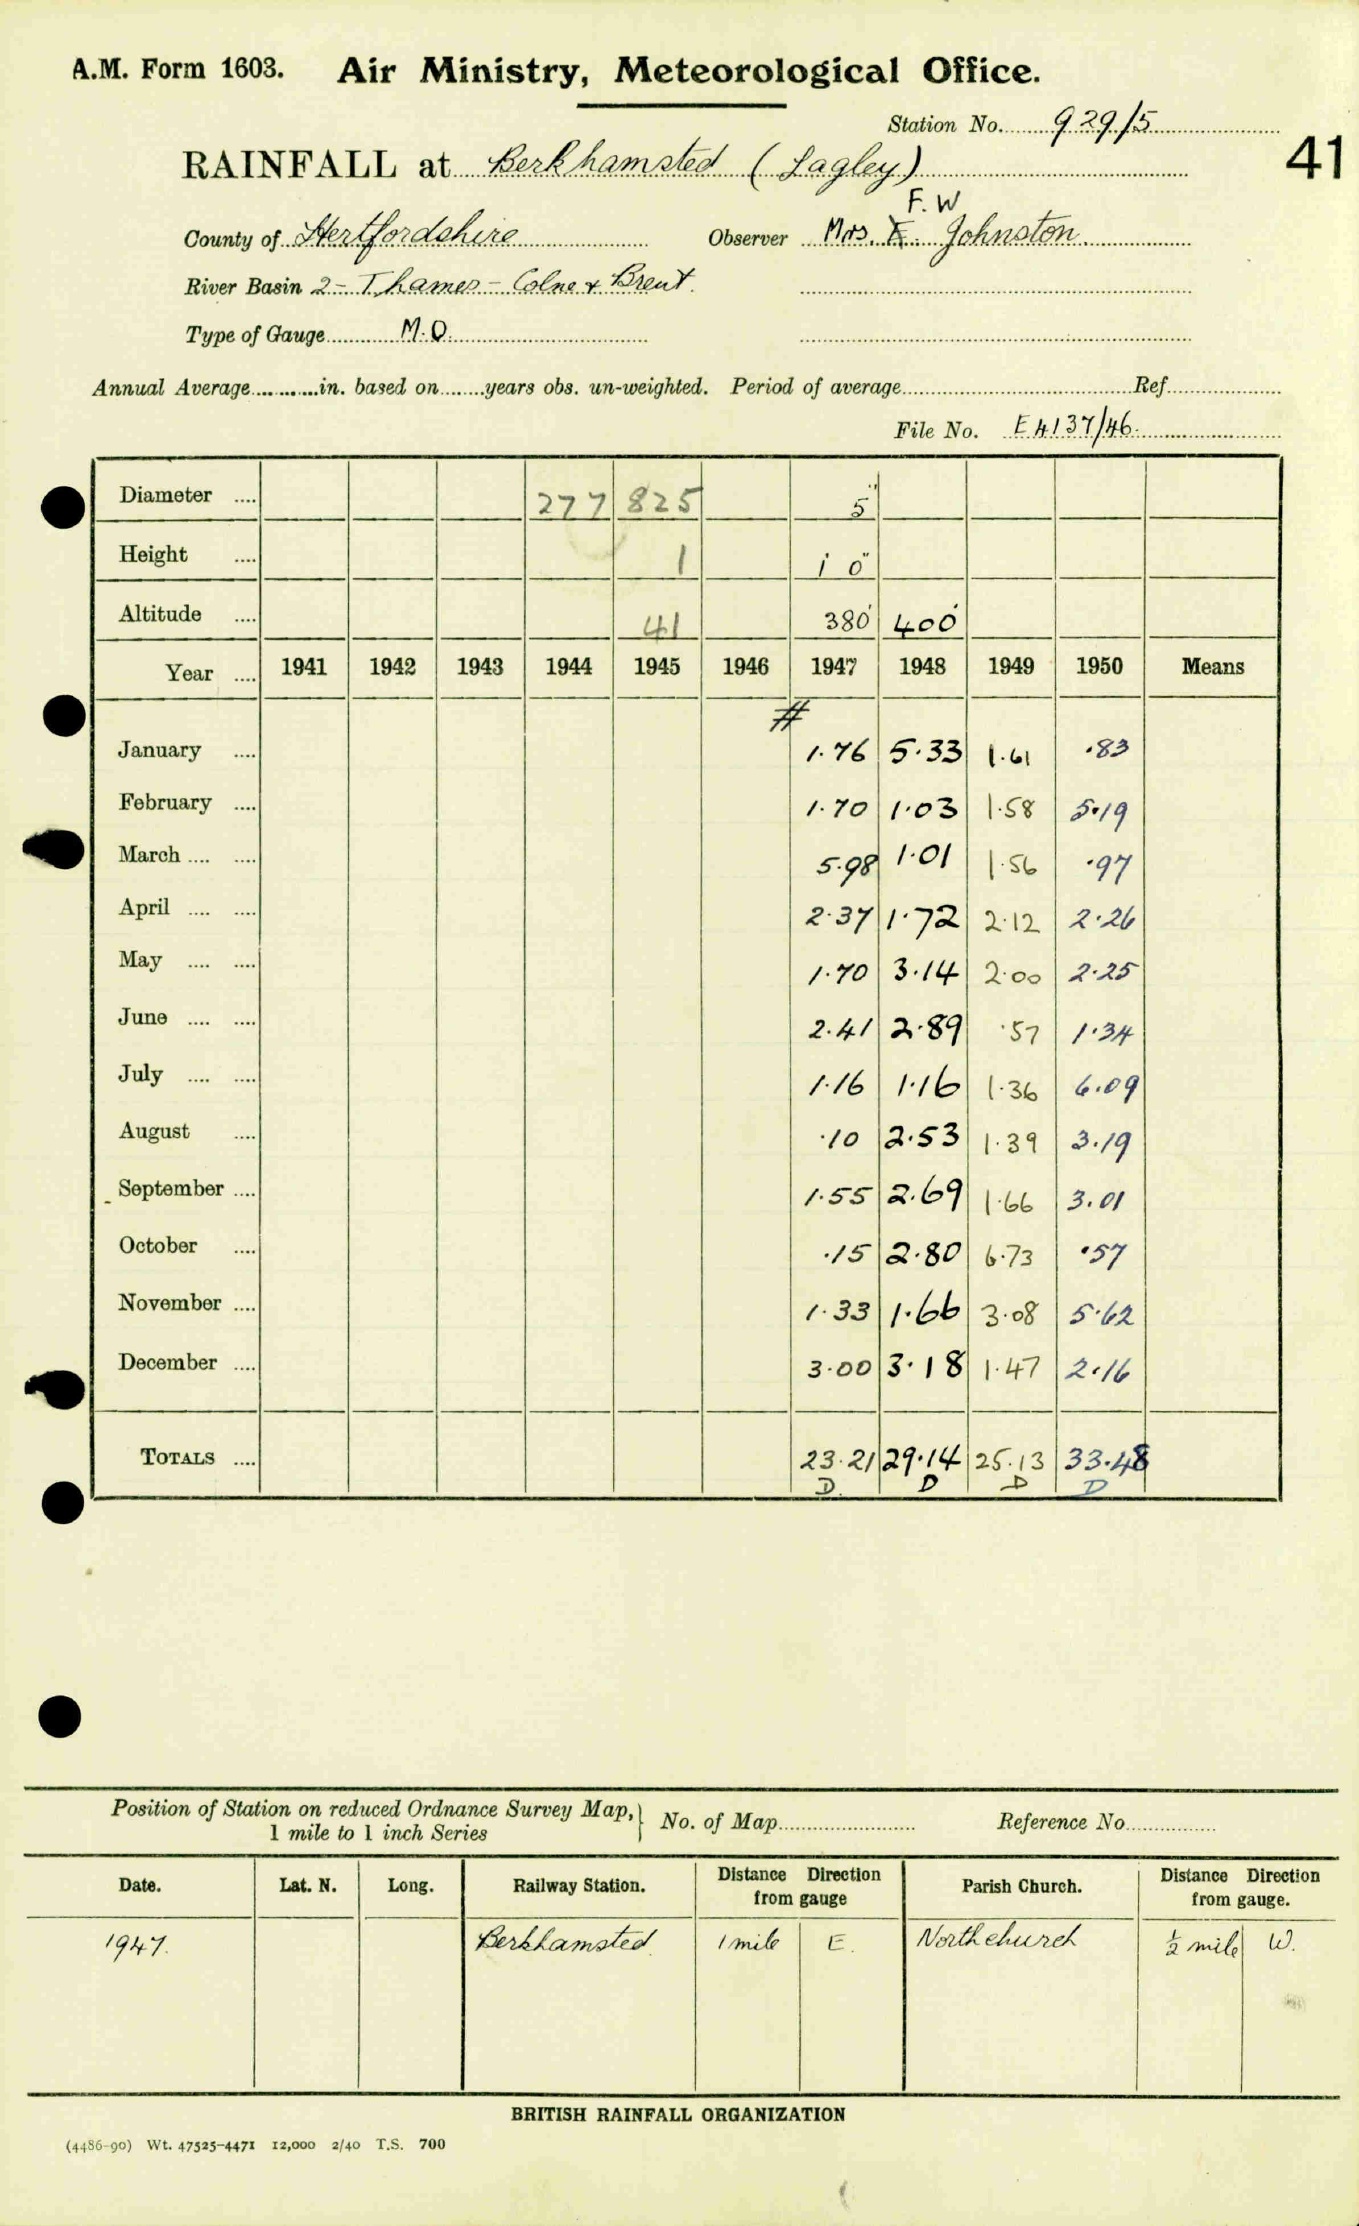 A.M. Form 1603. Air Ministry, Meteorological Office.
Station No. 929/5
41
RAINFALL at Berkhamsted (Lagley)
F. W
County of Hertfordshire Observer Mrs. Johnston
River Basin 2 - Thames - Colne & Brent.
Type of Gauge M.O.
Annual Average in. based on years obs. un-weighted. Period of average Ref
File No. E4137/46
Diameter 277 825 5"
Height 1 1' 0"
Altitude 41 380' 400'
Year 1941 1942 1943 1944 1945 1946 1947 1948 1949 1950 Means
#
January 1.76 5.33 1.61 .83
February 1.70 1.03 1.58 5.19
March 5.98 1.01 1.56 .97
April 2.37 1.72 2.12 2.26
May 1.70 3.14 2.00 2.25
June 2.41 2.89 .57 1.34
July 1.16 1.16 1.36 6.09
August .10 2.53 1.39 3.19
September 1.55 2.69 1.66 3.01
October .15 2.80 6.73 .57
November 1.33 1.66 3.08 5.62
December 3.00 3.18 1.47 2.16
TOTALS 23.21 29.14 25.13 33.48
D. D D D
Position of Station on reduced Ordnance Survey Map, } No. of Map Reference No
1 mile to 1 inch Series
Date. Lat. N. Long. Railway Station. Distance Direction from gauge Parish Church. Distance Direction from gauge.
1947. Berkhamsted 1 mile E. Northchurch ½ mile W.
BRITISH RAINFALL ORGANIZATION
(4486-90) Wt. 47525-4471 12,000 2/40 T.S. 700